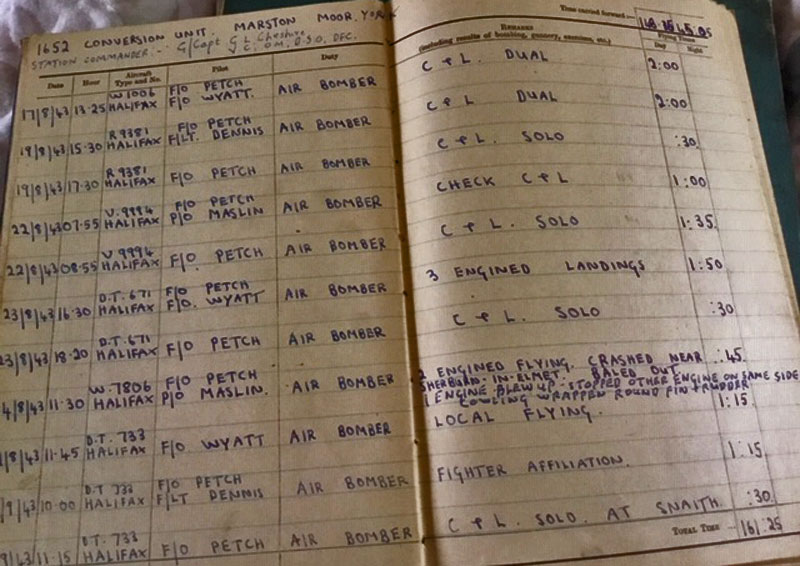 1652 CONVERSION UNIT. MARSTON MOOR. YORK
STATION COMMANDER -. G/Capt G L Cheshire
V.C., O.M., D.S.O., DFC.
Date Hour Aircraft Type and No. Pilot Duty
17/8/43 13.25 W1006 HALIFAX F/O PETCH F/O WYATT. AIR BOMBER
19/8/43 15.30 R9381 HALIFAX F/O PETCH F/LT. DENNIS AIR BOMBER
19/8/43 17.30 R9381 HALIFAX F/O PETCH AIR BOMBER
22/8/43 07.55 V.9994 HALIFAX F/O PETCH P/O MASLIN AIR BOMBER
22/8/43 08.55 V.9994 HALIFAX F/O PETCH AIR BOMBER
23/8/43 16.30 D.T. 671 HALIFAX F/O PETCH F/O. WYATT AIR BOMBER
23/8/43 18.20 D.T. 671 HALIFAX F/O PETCH AIR BOMBER
4/8/43 11.30 W.7806 HALIFAX F/O PETCH P/O MASLIN. AIR BOMBER
/8/43 11.45 D.T. 733 HALIFAX F/O WYATT AIR BOMBER
/9/43 10.00 D.T 733 HALIFAX F/O PETCH F/LT DENNIS AIR BOMBER
/9/43 11.15 DT. 733 HALIFAX F/O PETCH AIR BOMBER
Time carried forward:—
REMARKS
(including results of bombing, gunnery, exercises, etc.)
Flying Times
Day Night
C & L. DUAL 2:00
C & L DUAL 2:00
C & L. SOLO :30
CHECK C & L 1:00
C & L. SOLO 1:35.
3 ENGINED LANDINGS 1:50
C & L. SOLO :30
2 ENGINED FLYING. CRASHED NEAR :45.
SHERBURN-IN-ELMET. BALED OUT.
1 ENGINE BLEW UP. STOPPED OTHER ENGINE ON SAME SIDE
COWLING WRAPPED ROUND FIN & RUDDER
LOCAL FLYING. 1:15.
FIGHTER AFFILIATION. 1:15.
C & L. SOLO. AT SNAITH. :30.
TOTAL TIME 161.25